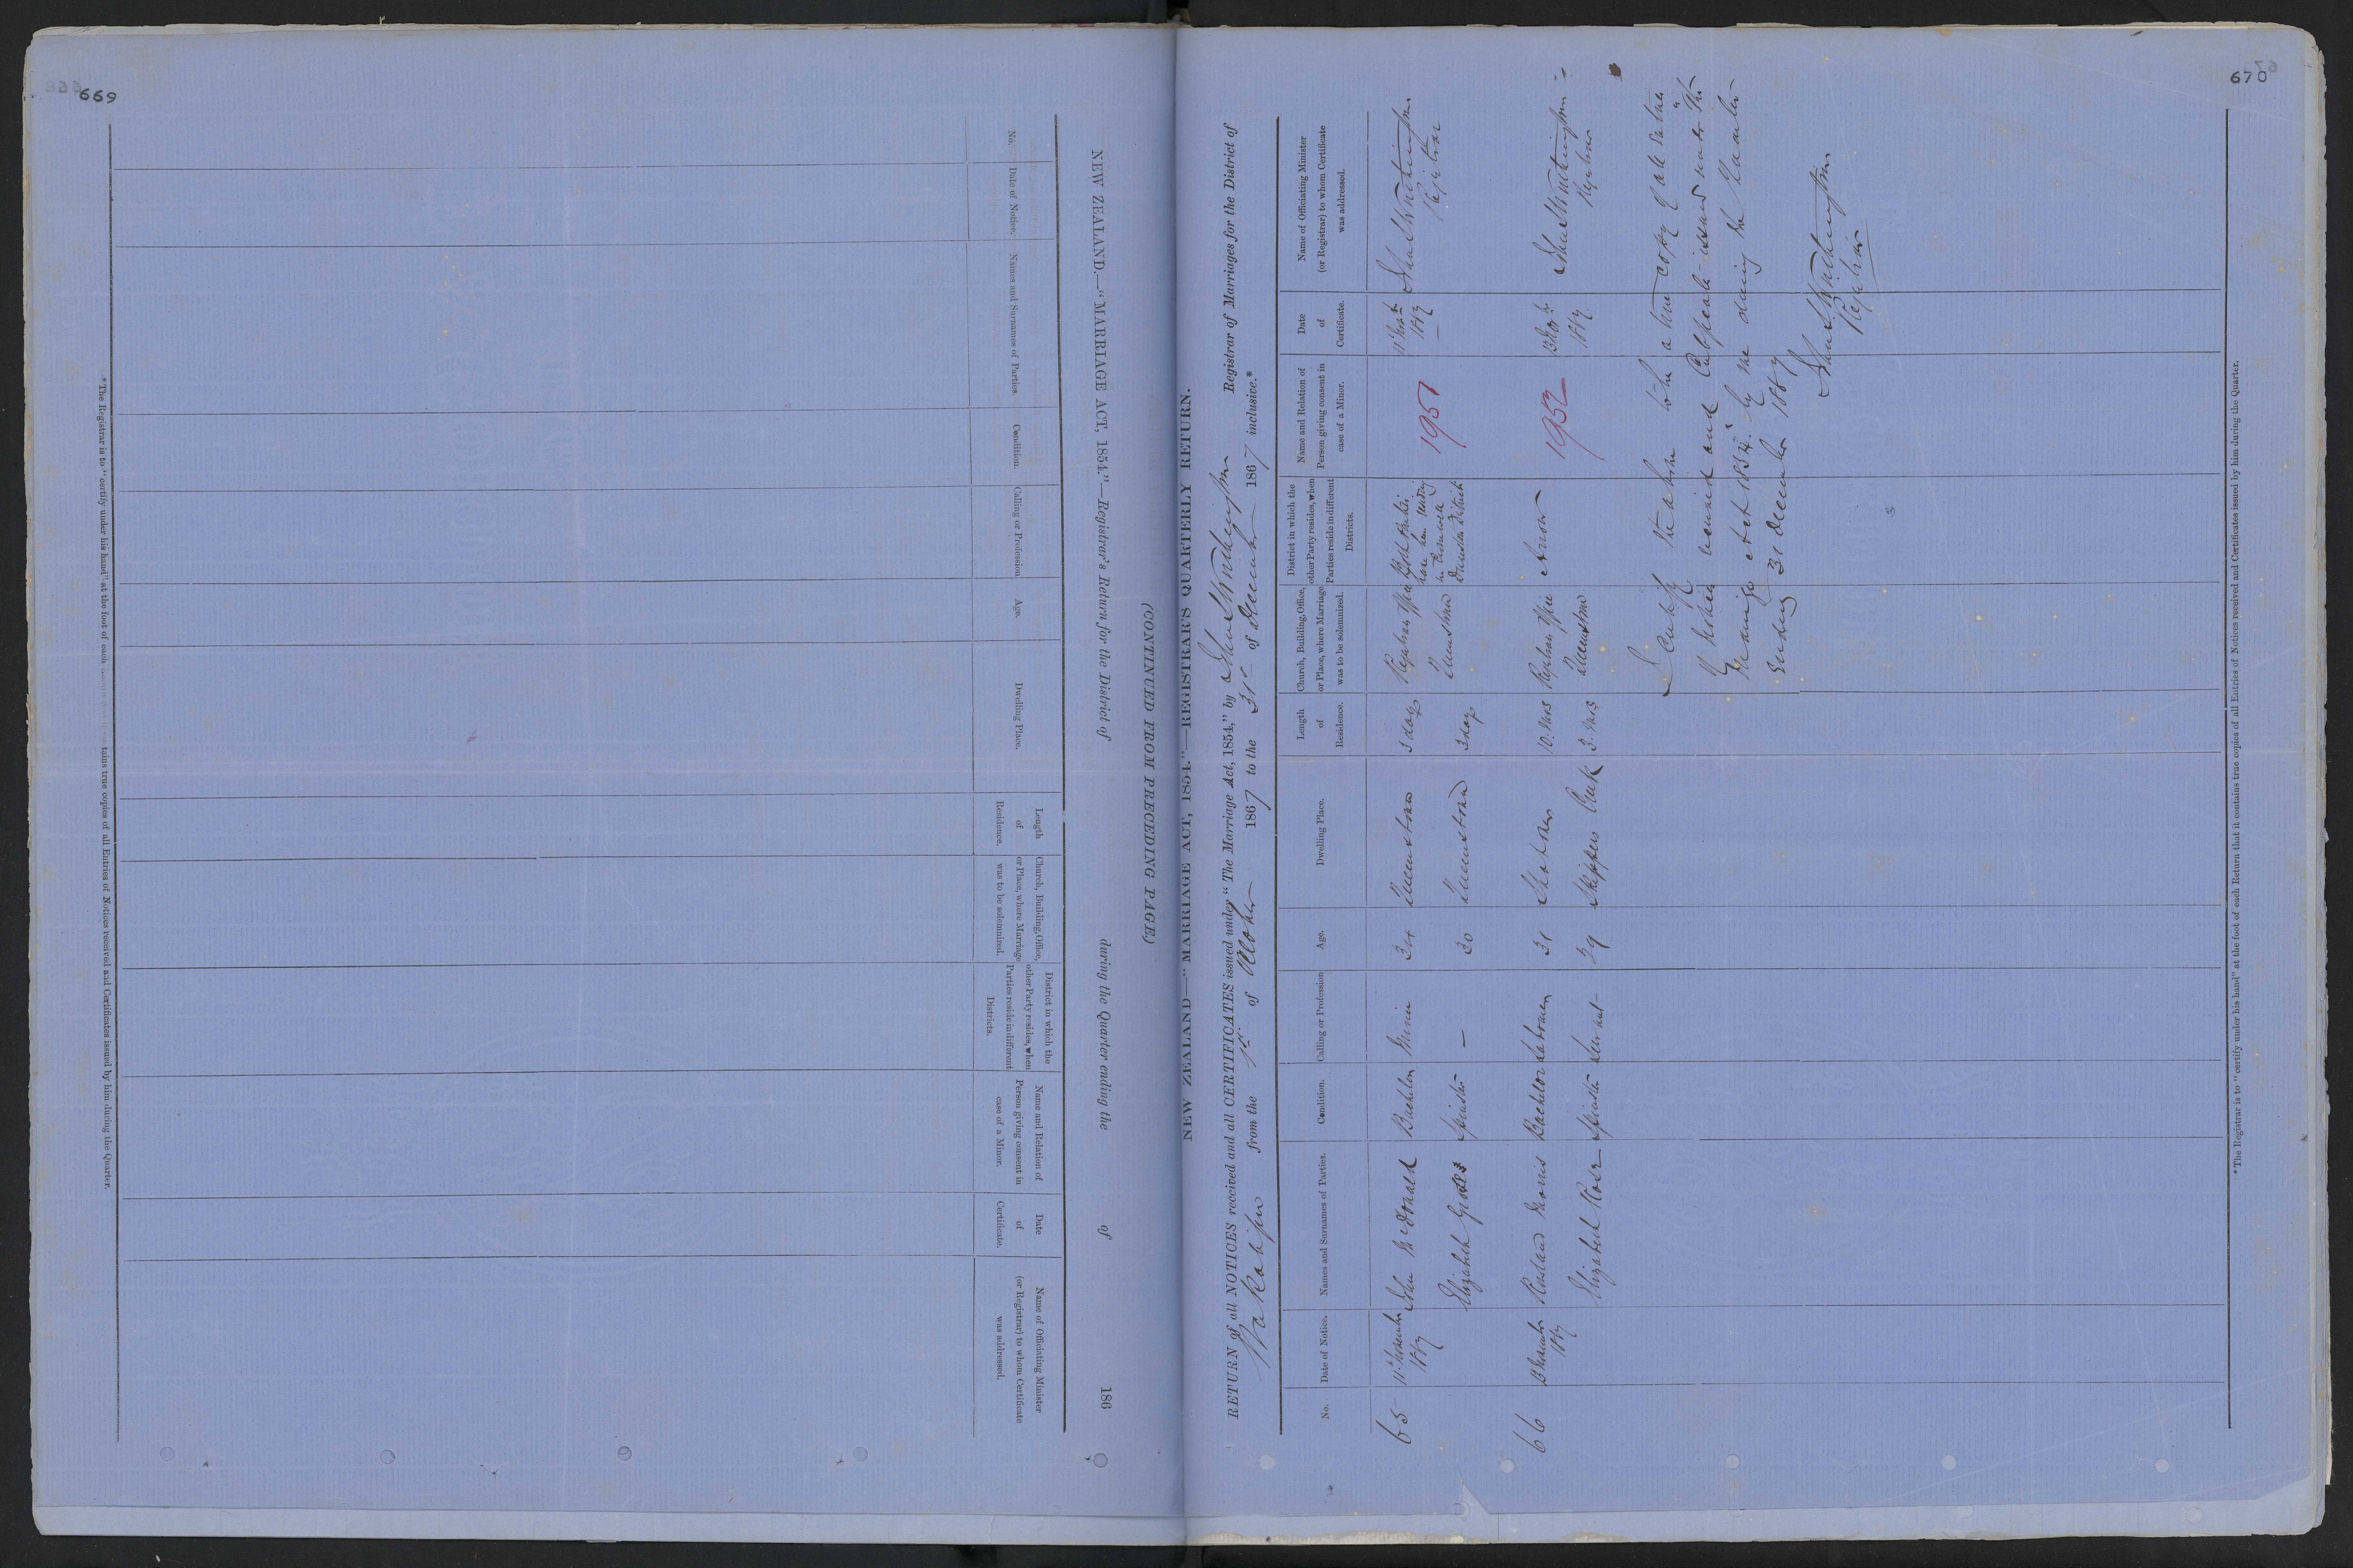 669
NEW ZEALAND.—"MARRIAGE ACT, 1854."—Registrar's Return for the District of during the Quarter ending the of 186
No.
Date of Notice.
Names and Surnames of Parties.
Condition.
Calling or Profession
Age.
Dwelling Place.
Length
of
Residence.
Church, Building, Office,
or Place, where Marriage
was to be solemnized.
District in which the
other Party resides, when
Parties reside in different
Districts.
Name and Relation of
Person giving consent in
case of a Minor.
Date
of
Certificate.
Name of Officiating Minister
(or Registrar) to whom Certificate
was addressed.
*The Registrar is to "certify under his hand" at the foot of each tains true copies of all Entries of Notices received and Certificates issued by him during the Quarter.
(CONTINUED FROM PRECEDING PAGE.)
670
NEW ZEALAND—"MARRIAGE ACT, 1854."—REGISTRAR'S QUARTERLY RETURN.
RETURN of all NOTICES received and all CERTIFICATES issued under "The Marriage Act, 1854," by Registrar of Marriages for the District of
Wakatipu from the 1st of October 1867 to the 31st of December 1867 inclusive.*
No.
Date of Notice.
Names and Surnames of Parties.
Condition.
Calling or Profession
Age.
Dwelling Place.
Length
of
Residence.
Church, Building, Office,
or Place, where Marriage
was to be solemnized.
District in which the
other Party resides, when
Parties reside in different
Districts.
Name and Relation of
Person giving consent in
case of a Minor.
Date
of
Certificate.
Name of Officiating Minister
(or Registrar) to whom Certificate
was addressed.
65 11 November John McDonald Bachelor Miner 34 Queenstown 3 days Registrars Office Both Parties 1951 11 Novbr
1867 have been residing 1867 Registrar
Elizabeth Spinster — 30 Queenstown 3 days Queenstown in the
Dunstan District
66 13 November Rowland Morris Bachelor Labourer 31 Shotover 10. Mos Registrars Office Arrow 1952 13 Novbr
1867 1867 Registrar
Elizabeth Rose Spinster Servant 29 Skippers Creek 3. Mos Queenstown
I Certify the above to be a true copy of all entries
of Notices received and Certificates issued under "The
Marriage Act 1854." by me during the Quarter
ending 31 December 1867
Registrar
*The Registrar is to "certify under his hand" at the foot of each Return that it contains true copies of all Entries of Notices received and Certificates issued by him during the Quarter.